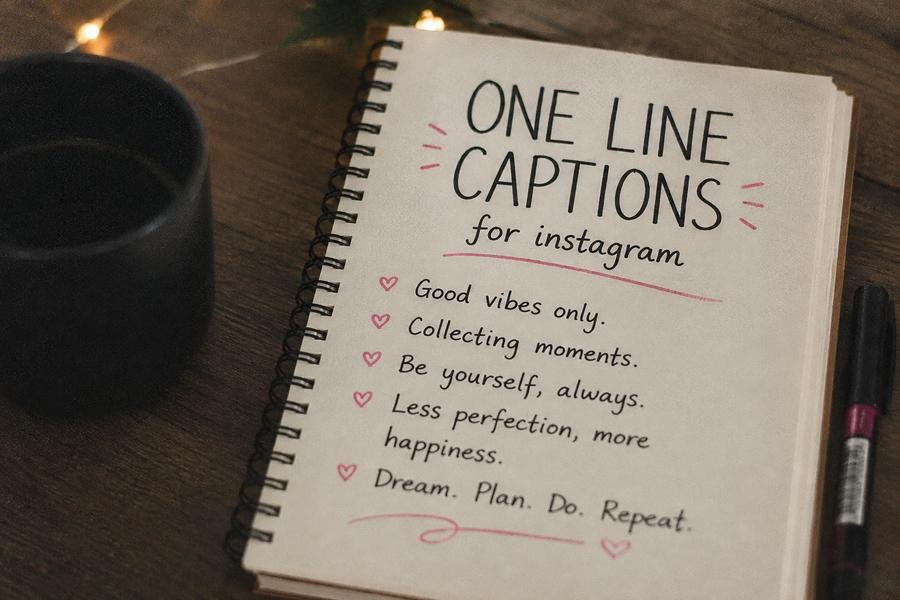 ONE LINE
CAPTIONS
for instagram
Good vibes only.
Collecting moments.
Be yourself, always.
Less perfection, more
happiness.
Dream. Plan. Do. Repeat.